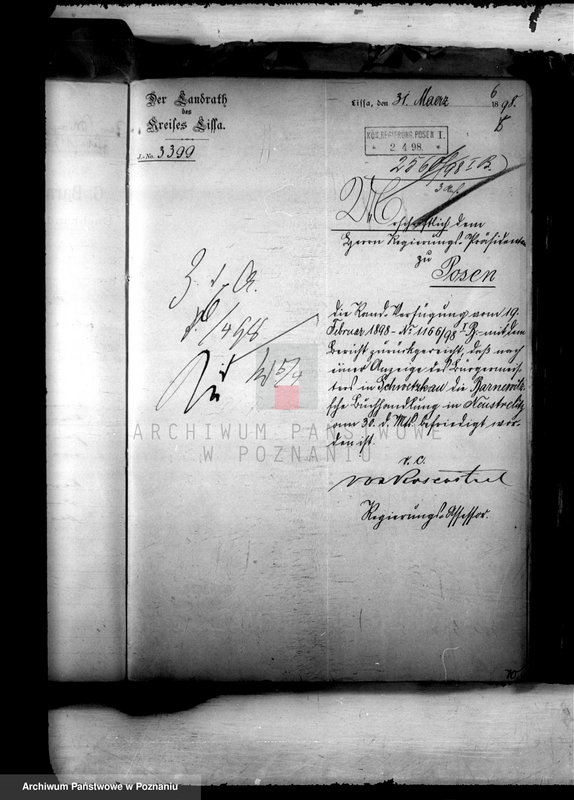 Der Landrath
des
Kreises Lissa.
J.-No. 3399
Lissa, den 31. Maerz 1898.
6
KÖN. REGIERUNG. POSEN I.
* 2 4 98. *
256 /98 I B.
3 Anl.
schriftlich dem
Herrn Regierungs-Präsidenten
zu
Posen
Z. d. A.
P. /4 98
die Rand-Verfügung vom 19.
Februar 1898 - No 1166/98 I B. - mit dem
Bericht zurückgereicht, daß nach
einer Anzeige des Bürgermei-
sters in Schwetzkau die Barnewitz-
sche Buchhandlung in Neustrelitz
am 30. d. Mts. befriedigt wor-
den ist.
Regierungs-Assessor.
70
ARCHIWUM PAŃSTWOWE
W POZNANIU
Archiwum Państwowe w Poznaniu